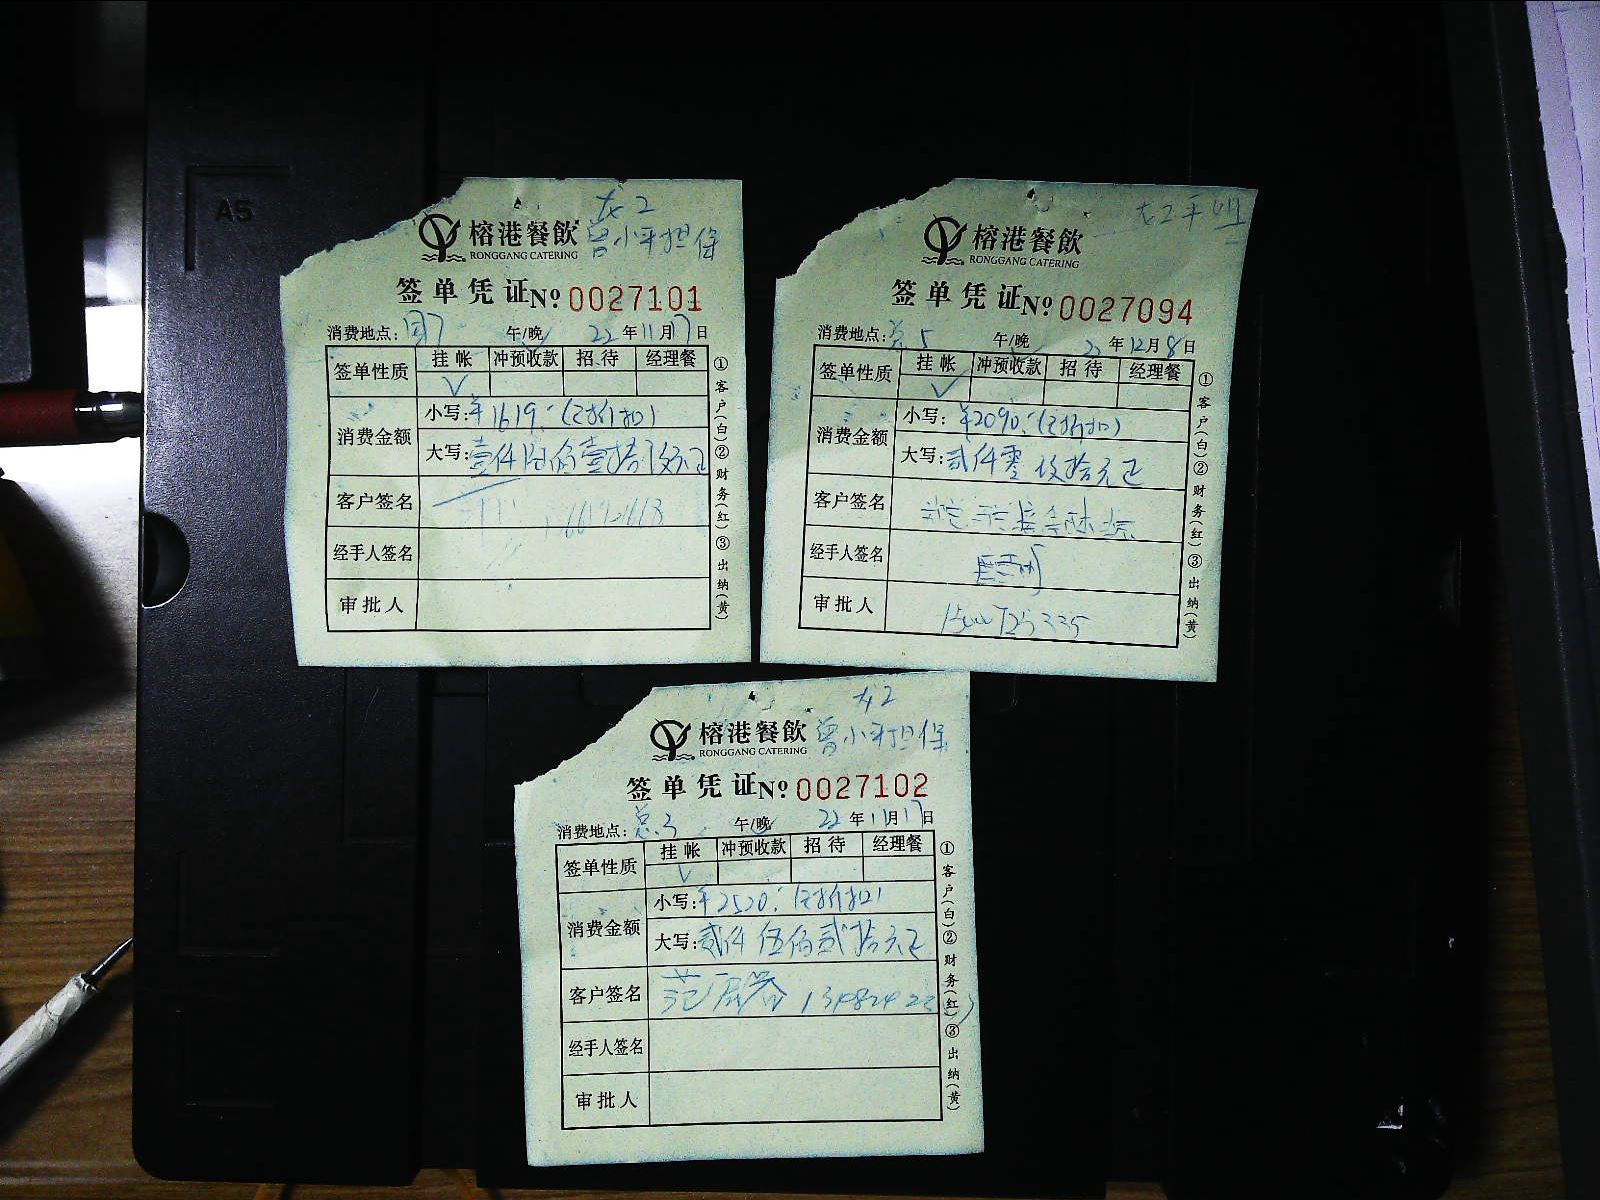 A5
龙2
榕港餐飲 曾小平担保
RONGGANG CATERING
签单凭证 Nº 0027101
消费地点: 午/晚 22年11月17日
签单性质 挂帐 冲预收款 招待 经理餐
√
消费金额 小写:¥1619.
大写:壹仟陆佰壹拾玖元正
客户签名
经手人签名
审批人
①客户(白)②财务(红)③出纳(黄)
榕港餐飲
RONGGANG CATERING
签单凭证 Nº 0027094
消费地点: 5 午/晚 年12月8日
签单性质 挂帐 冲预收款 招待 经理餐
√
消费金额 小写:¥2090.
大写:贰仟零玖拾元正
客户签名
经手人签名
审批人
①客户(白)②财务(红)③出纳(黄)
龙2
榕港餐飲 曾小平担保
RONGGANG CATERING
签单凭证 Nº 0027102
消费地点: 午/晚 22年11月17日
签单性质 挂帐 冲预收款 招待 经理餐
√
消费金额 小写:¥2520.
大写:贰仟伍佰贰拾元正
客户签名 范
经手人签名
审批人
①客户(白)②财务(红)③出纳(黄)